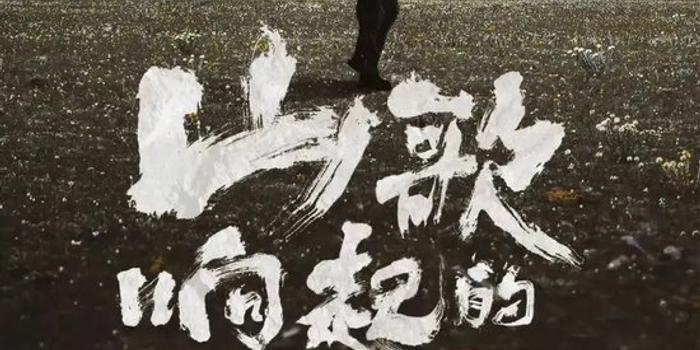 山歌
响起的